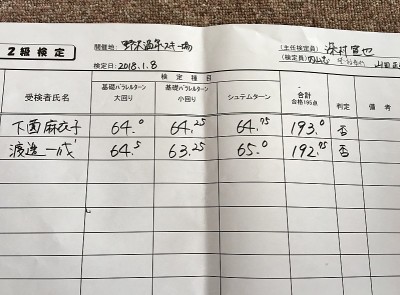 2級検定 開催地: 野沢温泉スキー場 (主任検定員)
検定日: 2018.1.8 (検定員)
検定種目
受検者氏名 基礎パラレルターン 大回り 基礎パラレルターン 小回り シュテムターン 合計 合格195点 判定 備考
下薗麻衣子 64.0 64.25 64.75 193.0 否
渡邉一成 64.5 63.25 65.0 192.75 否